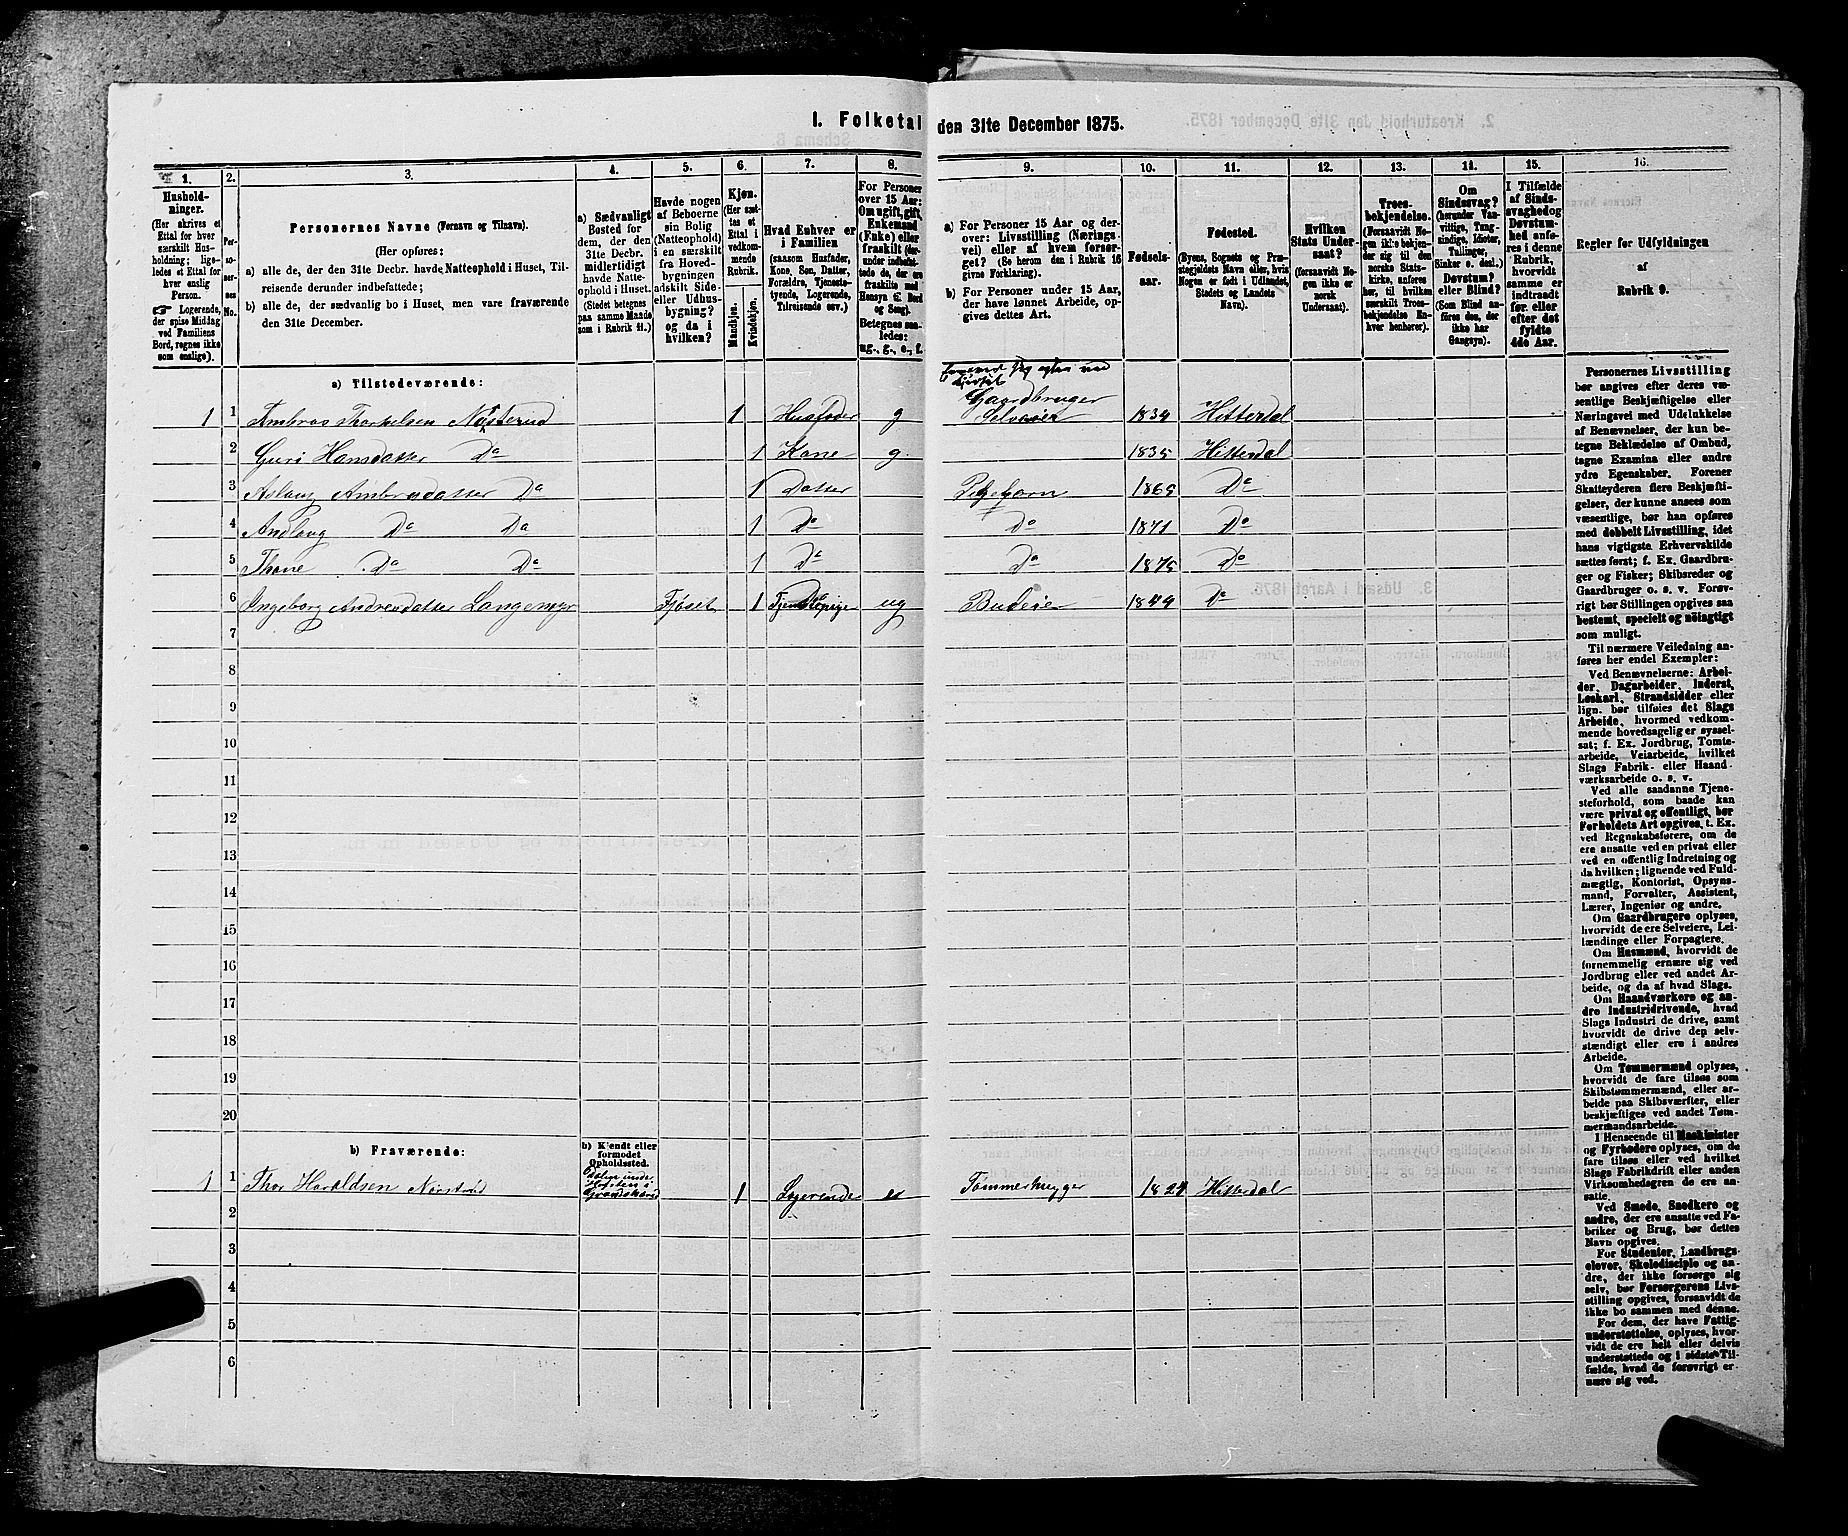 1. Folketal den 31te December 1875.
1. 2. 3. 4. 5. 6. 7. 8. 9. 10. 11. 12. 13. 14. 15. 16.
Hushold-
ninger.
(Her skrives et
Ettal for hver
særskilt Hus-
holdning; lige-
ledes et Ettal for
hver enslig
Person.
☞ Logerende,
der spise Middag
ved Familiens
Bord, regnes ikke
som enslige).
Per-
so-
ner-
nes
No.
Personernes Navne (Fornavn og Tilnavn).
(Her opføres:
a) alle de, der den 31te Decbr. havde Natteophold i Huset, Til-
reisende derunder indbefattede;
b) alle de, der sædvanlig bo i Huset, men vare fraværende
den 31te December.
a) Sædvanligt
Bosted for
dem, der den
31te Decbr.
midlertidigt
havde Natte-
ophold i Huset.
(Stedet betegnes
paa samme Maade
som i Rubrik 11.)
Havde nogen
af Beboerne
sin Bolig
(Natteophold)
i en særskilt
fra Hoved-
bygningen
adskilt Side-
eller Udhus-
bygning?
og da i
hvilken?
Kjøn.
(Her sæt-
tes et
Ettal i
vedkom-
mende
Rubrik.
Mandkjøn.
Kvindekjøn.
Hvad Enhver er
i Familien
(saasom Husfader,
Kone, Søn, Datter,
Forældre, Tjeneste-
tyende, Logerende,
Tilreisende osv.)
For Personer
over 15 Aar:
Om ugift, gift,
Enkemand
(Enke) eller
fraskilt (der-
under indbefat-
tede de, der ere
fraskilte med
Hensyn til Bord
og Seng).
Betegnes saa-
ledes:
ug., g., e., f.
a) For Personer 15 Aar og der-
over: Livsstilling (Nærings-
vei) eller af hvem forsør-
get? (Se herom den i Rubrik 16
givne Forklaring).
b) For Personer under 15 Aar,
der have lønnet Arbeide, op-
gives dettes Art.
Fødsels-
aar.
Fødested.
(Byens, Sognets og Præ-
stegjeldets Navn eller, hvis
Nogen er født i Udlandet,
Stedets og Landets
Navn).
Hvilken
Stats Under-
saat?
(forsaavidt No-
gen ikke er
norsk
Undersaat).
Troes-
bekjendelse.
(Forsaavidt No-
gen ikke bekjen-
der sig til den
norske Stats-
kirke, anføres
her, til hvilken
særskilt Troes-
bekjendelse En-
hver henhører).
Om
Sindssvag?
(herunder Van-
vittige, Tung-
sindige, Idioter,
Tullinger,
Sinker o. desl.)
Døvstum?
eller Blind?
(Som Blind an-
føres den, der
ikke har
Gangsyn).
I Tilfælde
af Sinds-
svaghed og
Døvstum-
hed anfø-
res i denne
Rubrik,
hvorvidt
samme er
indtraadt
før eller
efter det
fyldte
4de Aar.
Regler for Udfyldningen
af
Rubrik 9.
a) Tilstedeværende:
Gaardbruger
1 1 Ambros Thorkelsen Nøsterud 1 Husfader g Selveier 1834 Hitterdal
2 Guri Hansdatter Do 1 Kone g. 1835 Hitterdal
3 Aslaug Ambrosdatter Do 1 Datter 1865 Do
4 Andlaug Do Do 1 Do Do 1871 Do
5 Thone Do Do 1 Do Do 1875 Do
6 Ingeborg Andreadatter Langemyr Fjøset 1 ug Budeie 1849 Do
7
8
9
10
11
12
13
14
15
16
17
18
19
20
b) Fraværende:
b) Kjendt eller
formodet
Opholdssted.
1 1 Thor Haraldsen 1 Logerende Tømmerhugger 1821 Hitterdal
2
3
4
5
6
Personernes Livsstilling
bør angives efter deres væ-
sentlige Beskjæftigelse eller
Næringsvei med Udelukkelse
af Benævnelser, der kun be-
tegne Beklædelse af Ombud,
tagne Examina eller andre
ydre Egenskaber. Forener
Skatteyderen flere Beskjæfti-
gelser, der kunne ansees som
væsentlige, bør han opføres
med dobbelt Livsstilling, idet
hans vigtigste Erhvervskilde
sættes først; f. Ex. Gaardbru-
ger og Fisker; Skibsreder og
Gaardbruger o. s. v. Forøv-
rigt bør Stillingen opgives saa
bestemt, specielt og nöiagtigt
som muligt.
Til nærmere Veiledning an-
føres her endel Exempler:
Ved Benævnelserne: Arbei-
der, Dagarbeider, Inderst,
Løskarl, Strandsidder eller
lign. bør tilføies det Slags
Arbeide, hvormed vedkom-
mende hovedsagelig er syssel-
sat; f. Ex. Jordbrug, Tomte-
arbeide, Veiarbeide, hvilket
Slags Fabrik- eller Haand-
værksarbeide o. s. v.
Ved alle saadanne Tjene-
steforhold, som baade kan
være privat og offentligt, bør
Forholdets Art opgives, t. Ex.
ved Regnskabsførere, om de
ere ansatte ved en privat eller
ved en offentlig Indretning og
da hvilken; lignende ved Fuld-
mægtig, Kontorist, Opsyns-
mand, Forvalter, Assistent,
Lærer, Ingeniør og andre.
Om Gaardbrugere oplyses,
hvorvidt de ere Selveiere, Lei-
lændinge eller Forpagtere.
Om Husmænd, hvorvidt de
fornemmelig ernære sig ved
Jordbrug eller ved andet Ar-
beide, og da af hvad Slags.
Om Haandværkere og an-
dre Industridrivende, hvad
Slags Industri de drive, samt
hvorvidt de drive den selv-
stændigt eller ere i andres
Arbeide.
Om Tømmermænd oplyses,
hvorvidt de fare tilsøs som
Skibstømmermænd, eller ar-
beide paa Skibsværfter, eller
beskjæftiges ved andet Tøm-
mermandsarbeide.
I Henseende til Maskinister
og Fyrbødere oplyses, om de
fare tilsøs eller ved hvilket
Slags Fabrikdrift eller anden
Virksomhedsgren de ere an-
satte.
Ved Smede, Snedkere og
andre, der ere ansatte ved Fa-
briker og Brug, bør dettes
Navn opgives.
For Studenter, Landbrugs-
elever, Skoledisciple og an-
dre, der ikke forsørge sig
selv, bør Forsørgerens Livs-
stilling opgives, forsaavidt de
ikke bo sammen med denne.
For dem, der have Fattig-
understøttelse, oplyses, hvor-
vidt de ere helt eller delvis
understøttede og i sidste Til-
fælde, hvad de forøvrigt er-
nære sig ved.